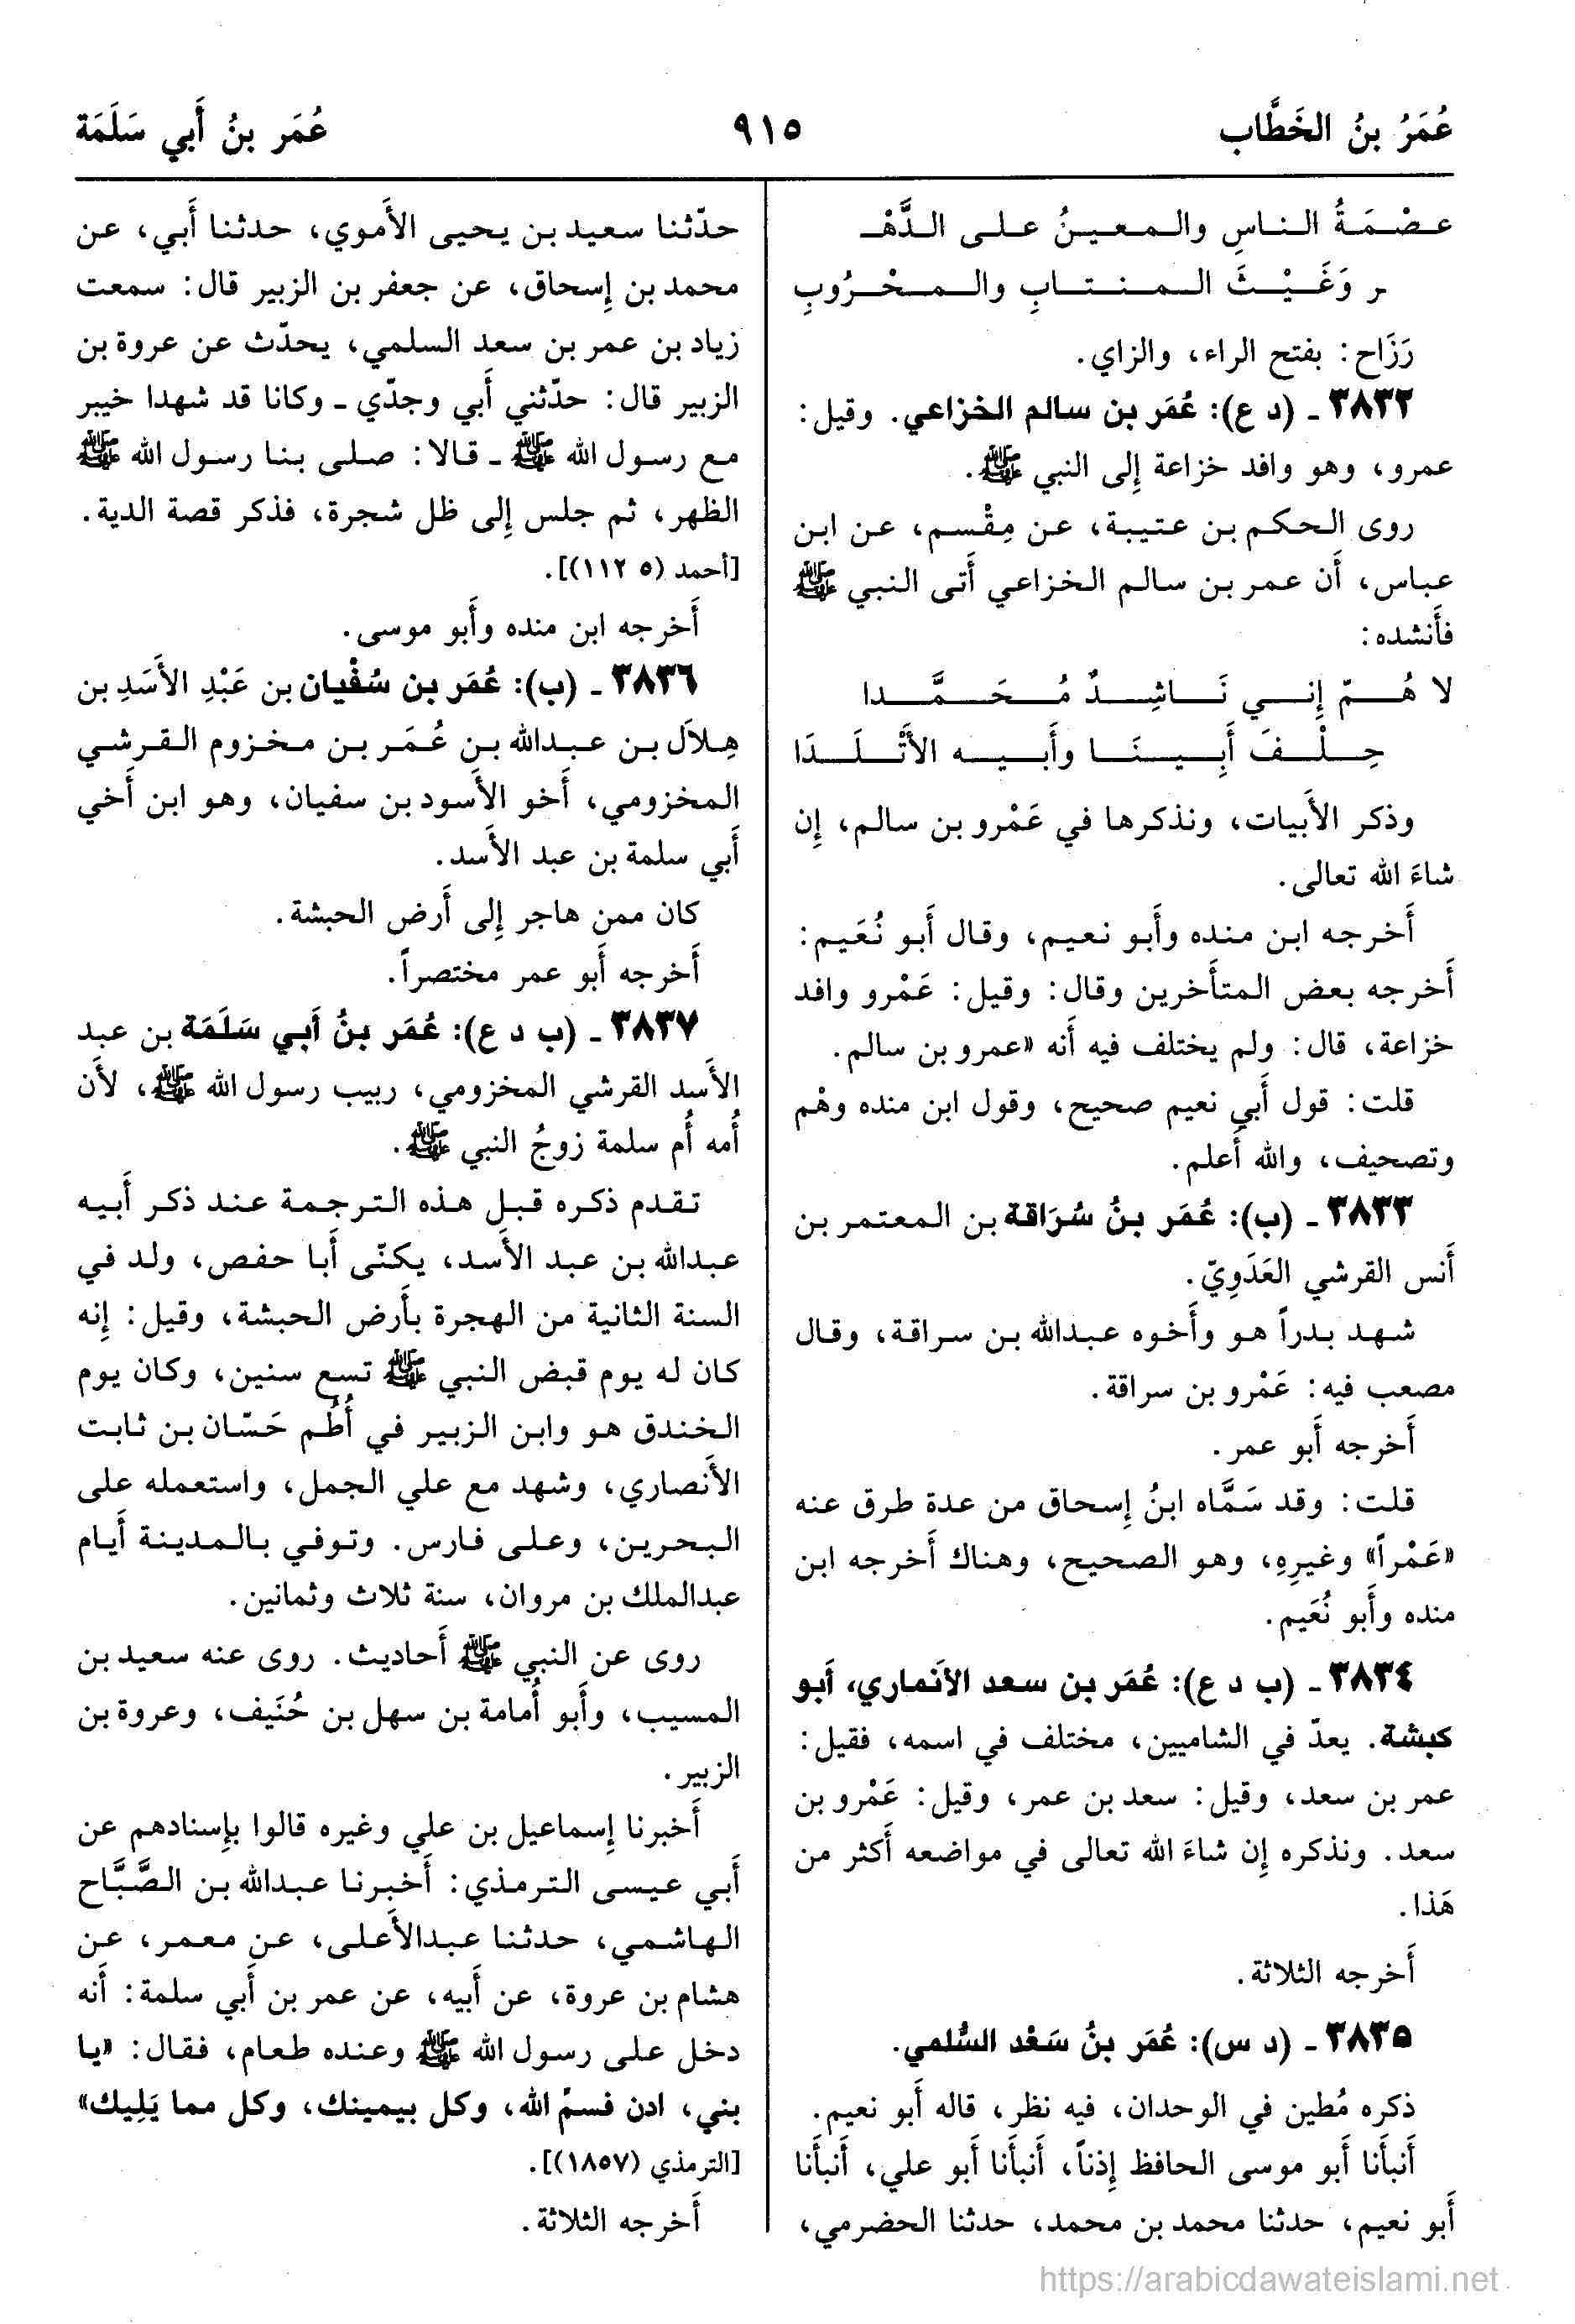 عُمَرُ بنُ الخَطَّاب
٩١٥
عُمَر بنُ أَبي سَلَمَة
عصْمَةُ الناسِ والمعينُ على الدَّهْـ
ـر وَغَيْثَ المنتابِ والمحْرُوبِ
رَزَاح: بفتح الراء، والزاي.
٣٨٣٢ - (د ع): عُمَر بن سالم الخزاعي. وقيل:
عمرو، وهو وافد خزاعة إِلى النبي ﷺ.
روى الحكم بن عتيبة، عن مِقْسم، عن ابن
عباس، أَن عمر بن سالم الخزاعي أَتى النبي ﷺ
فأَنشده:
لا هُمّ إِني نَاشِدٌ مُحَمَّدا
حِلْفَ أَبِينَا وأَبيه الأَتْلَدَا
وذكر الأَبيات، ونذكرها في عَمْرو بن سالم، إِن
شاءَ الله تعالى.
أَخرجه ابن منده وأَبو نعيم، وقال أَبو نُعَيم:
أَخرجه بعض المتأَخرين وقال: وقيل: عَمْرو وافد
خزاعة، قال: ولم يختلف فيه أَنه «عمرو بن سالم.
قلت: قول أَبي نعيم صحيح، وقول ابن منده وهْم
وتصحيف، والله أَعلم.
٣٨٣٣ - (ب): عُمَر بنُ سُرَاقة بن المعتمر بن
أَنس القرشي العَدَوِيّ.
شهد بدراً هو وأَخوه عبدالله بن سراقة، وقال
مصعب فيه: عَمْرو بن سراقة.
أَخرجه أَبو عمر.
قلت: وقد سَمَّاه ابنُ إِسحاق من عدة طرق عنه
«عَمْراً» وغيرِهِ، وهو الصحيح، وهناك أَخرجه ابن
منده وأَبو نُعَيم.
٣٨٣٤ - (ب د ع): عُمَر بن سعد الأَنماري، أَبو
كبشة. يعدّ في الشاميين، مختلف في اسمه، فقيل:
عمر بن سعد، وقيل: سعد بن عمر، وقيل: عَمْرو بن
سعد. ونذكره إِن شاءَ الله تعالى في مواضعه أَكثر من
هَذا.
أَخرجه الثلاثة.
٣٨٣٥ - (د س): عُمَر بنُ سَعْد السُّلمي.
ذكره مُطين في الوحدان، فيه نظر، قاله أَبو نعيم.
أَنبأَنا أَبو موسى الحافظ إِذناً، أَنبأَنا أَبو علي، أَنبأَنا
أَبو نعيم، حدثنا محمد بن محمد، حدثنا الحضرمي،
حدّثنا سعيد بن يحيى الأَموي، حدثنا أَبي، عن
محمد بن إِسحاق، عن جعفر بن الزبير قال: سمعت
زياد بن عمر بن سعد السلمي، يحدّث عن عروة بن
الزبير قال: حدّثني أَبي وجدّي - وكانا قد شهدا خيبر
مع رسول الله ﷺ - قالا: صلى بنا رسول الله ﷺ
الظهر، ثم جلس إِلى ظل شجرة، فذكر قصة الدية.
[أحمد (٥ ١١٢)].
أَخرجه ابن منده وأَبو موسى.
٣٨٣٦ - (ب): عُمَر بن سُفْيان بن عَبْدِ الأَسَدِ بن
هِلاَل بن عبدالله بن عُمَر بن مخزوم القرشي
المخزومي، أَخو الأَسود بن سفيان، وهو ابن أَخي
أَبي سلمة بن عبد الأَسد.
كان ممن هاجر إِلى أَرض الحبشة.
أَخرجه أَبو عمر مختصراً.
٣٨٣٧ - (ب د ع): عُمَر بنُ أَبي سَلَمَة بن عبد
الأَسد القرشي المخزومي، ربيب رسول الله ﷺ، لأَن
أُمه أُم سلمة زوجُ النبي ﷺ.
تقدم ذكره قبل هذه الترجمة عند ذكر أَبيه
عبدالله بن عبد الأَسد، يكنّى أَبا حفص، ولد في
السنة الثانية من الهجرة بأَرض الحبشة، وقيل: إِنه
كان له يوم قبض النبي ﷺ تسع سنين، وكان يوم
الخندق هو وابن الزبير في أُطُم حَسّان بن ثابت
الأَنصاري، وشهد مع علي الجمل، واستعمله على
البحرين، وعلى فارس. وتوفي بالمدينة أَيام
عبدالملك بن مروان، سنة ثلاث وثمانين.
روى عن النبي ﷺ أَحاديث. روى عنه سعيد بن
المسيب، وأَبو أُمامة بن سهل بن حُنَيف، وعروة بن
الزبير.
أَخبرنا إِسماعيل بن علي وغيره قالوا بإِسنادهم عن
أَبي عيسى الترمذي: أَخبرنا عبدالله بن الصَّبَّاح
الهاشمي، حدثنا عبدالأَعلى، عن معمر، عن
هشام بن عروة، عن أَبيه، عن عمر بن أَبي سلمة: أَنه
دخل على رسول الله ﷺ وعنده طعام، فقال: «يا
بني، ادن فسمِّ الله، وكل بيمينك، وكل مما يَلِيك»
[الترمذي (١٨٥٧)].
أَخرجه الثلاثة.
https://arabicdawateislami.net